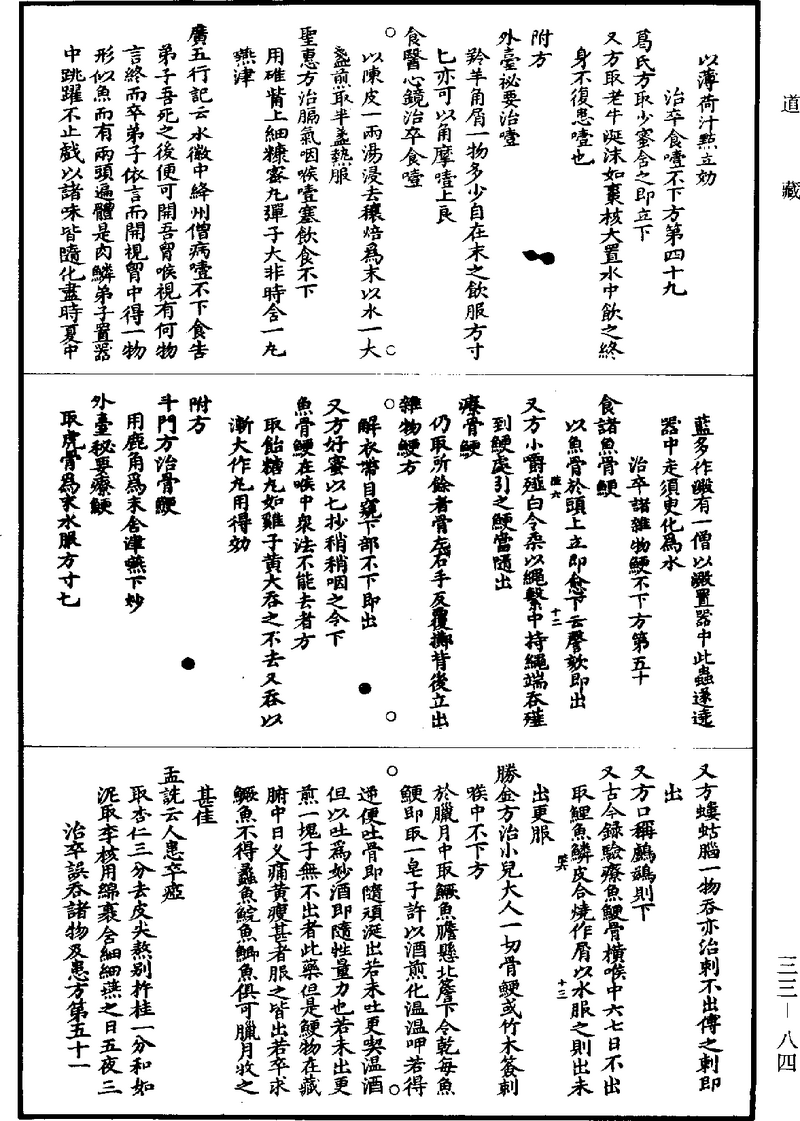 道藏
以薄荷汁點立効
治卒食噎不下方第四十九
葛氏方取少蜜含之即立下
又方取老牛涎沫如棗核大置水中飲之終
身不復患噎也
附方
外臺祕要治噎
羚羊角屑一物多少自在末之飲服方寸
匕亦可以角摩噎上良
食醫心鏡治卒食噎
以陳皮一兩湯浸去穰焙爲末以水一大
盞煎取半盞熱服
聖惠方治膈氣咽喉噎塞飲食不下
用碓觜上細糠蜜丸彈子大非時含一丸
嚥津
廣五行記云永徽中絳州僧病噎不下食告
弟子吾死之後便可開吾胷喉視有何物
言終而卒弟子依言而開視胷中得一物
形似魚而有兩頭遍體是肉鱗弟子置器
中跳躍不止戲以諸味皆隨化盡時夏中
藍多作澱有一僧以澱置器中此蟲遂遶
器中走須臾化爲水
治卒諸雜物鯁不下方第五十
食諸魚骨鯁
以魚骨於頭上立即愈下云謦欬即出
又方小嚼薤白令柔以繩繫中持繩端吞薤
到鯁處引之鯁當隨出
療骨鯁
仍取所餘者骨左右手反覆擲背後立出
雜物鯁方
解衣帶目窺下部不下即出
又方好蜜以匕抄稍稍咽之令下
魚骨鯁在喉中衆法不能去者方
取飴糖丸如雞子黃大吞之不去又吞以
漸大作丸用得効
附方
斗門方治骨鯁
用鹿角爲末含津嚥下妙
外臺秘要療鯁
取虎骨爲末水服方寸匕
又方螻蛄腦一物吞亦治刺不出傅之刺即
出
又方口稱鸕鷀則下
又古今錄驗療魚鯁骨橫喉中六七日不出
取鯉魚鱗皮合燒作屑以水服之則出未
出更服
勝金方治小兒大人一切骨鯁或竹木簽刺
喉中不下方
於臘月中取鱖魚膽懸北簷下令乾每魚
鯁即取一皂子許以酒煎化溫溫呷若得
逆便吐骨即隨頑涎出若未吐更喫溫酒
但以吐爲妙酒即隨性量力也若未出更
煎一塊子無不出者此藥但是鯁物在藏
腑中日久痛黃瘦甚者服之皆出若卒求
鱖魚不得蠡魚鯇魚鯽魚俱可臘月收之
甚佳
孟詵云人患卒瘂
取杏仁三分去皮尖熬別杵桂一分和如
泥取李核用綿裹含細細嚥之日五夜三
治卒誤吞諸物及患方第五十一
三三—八四